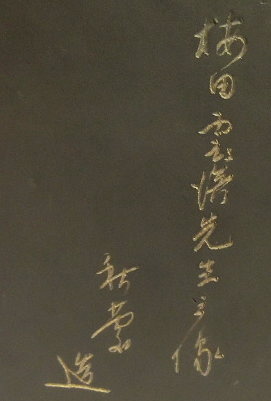 梅田雲浜先生之像
秋蒙造